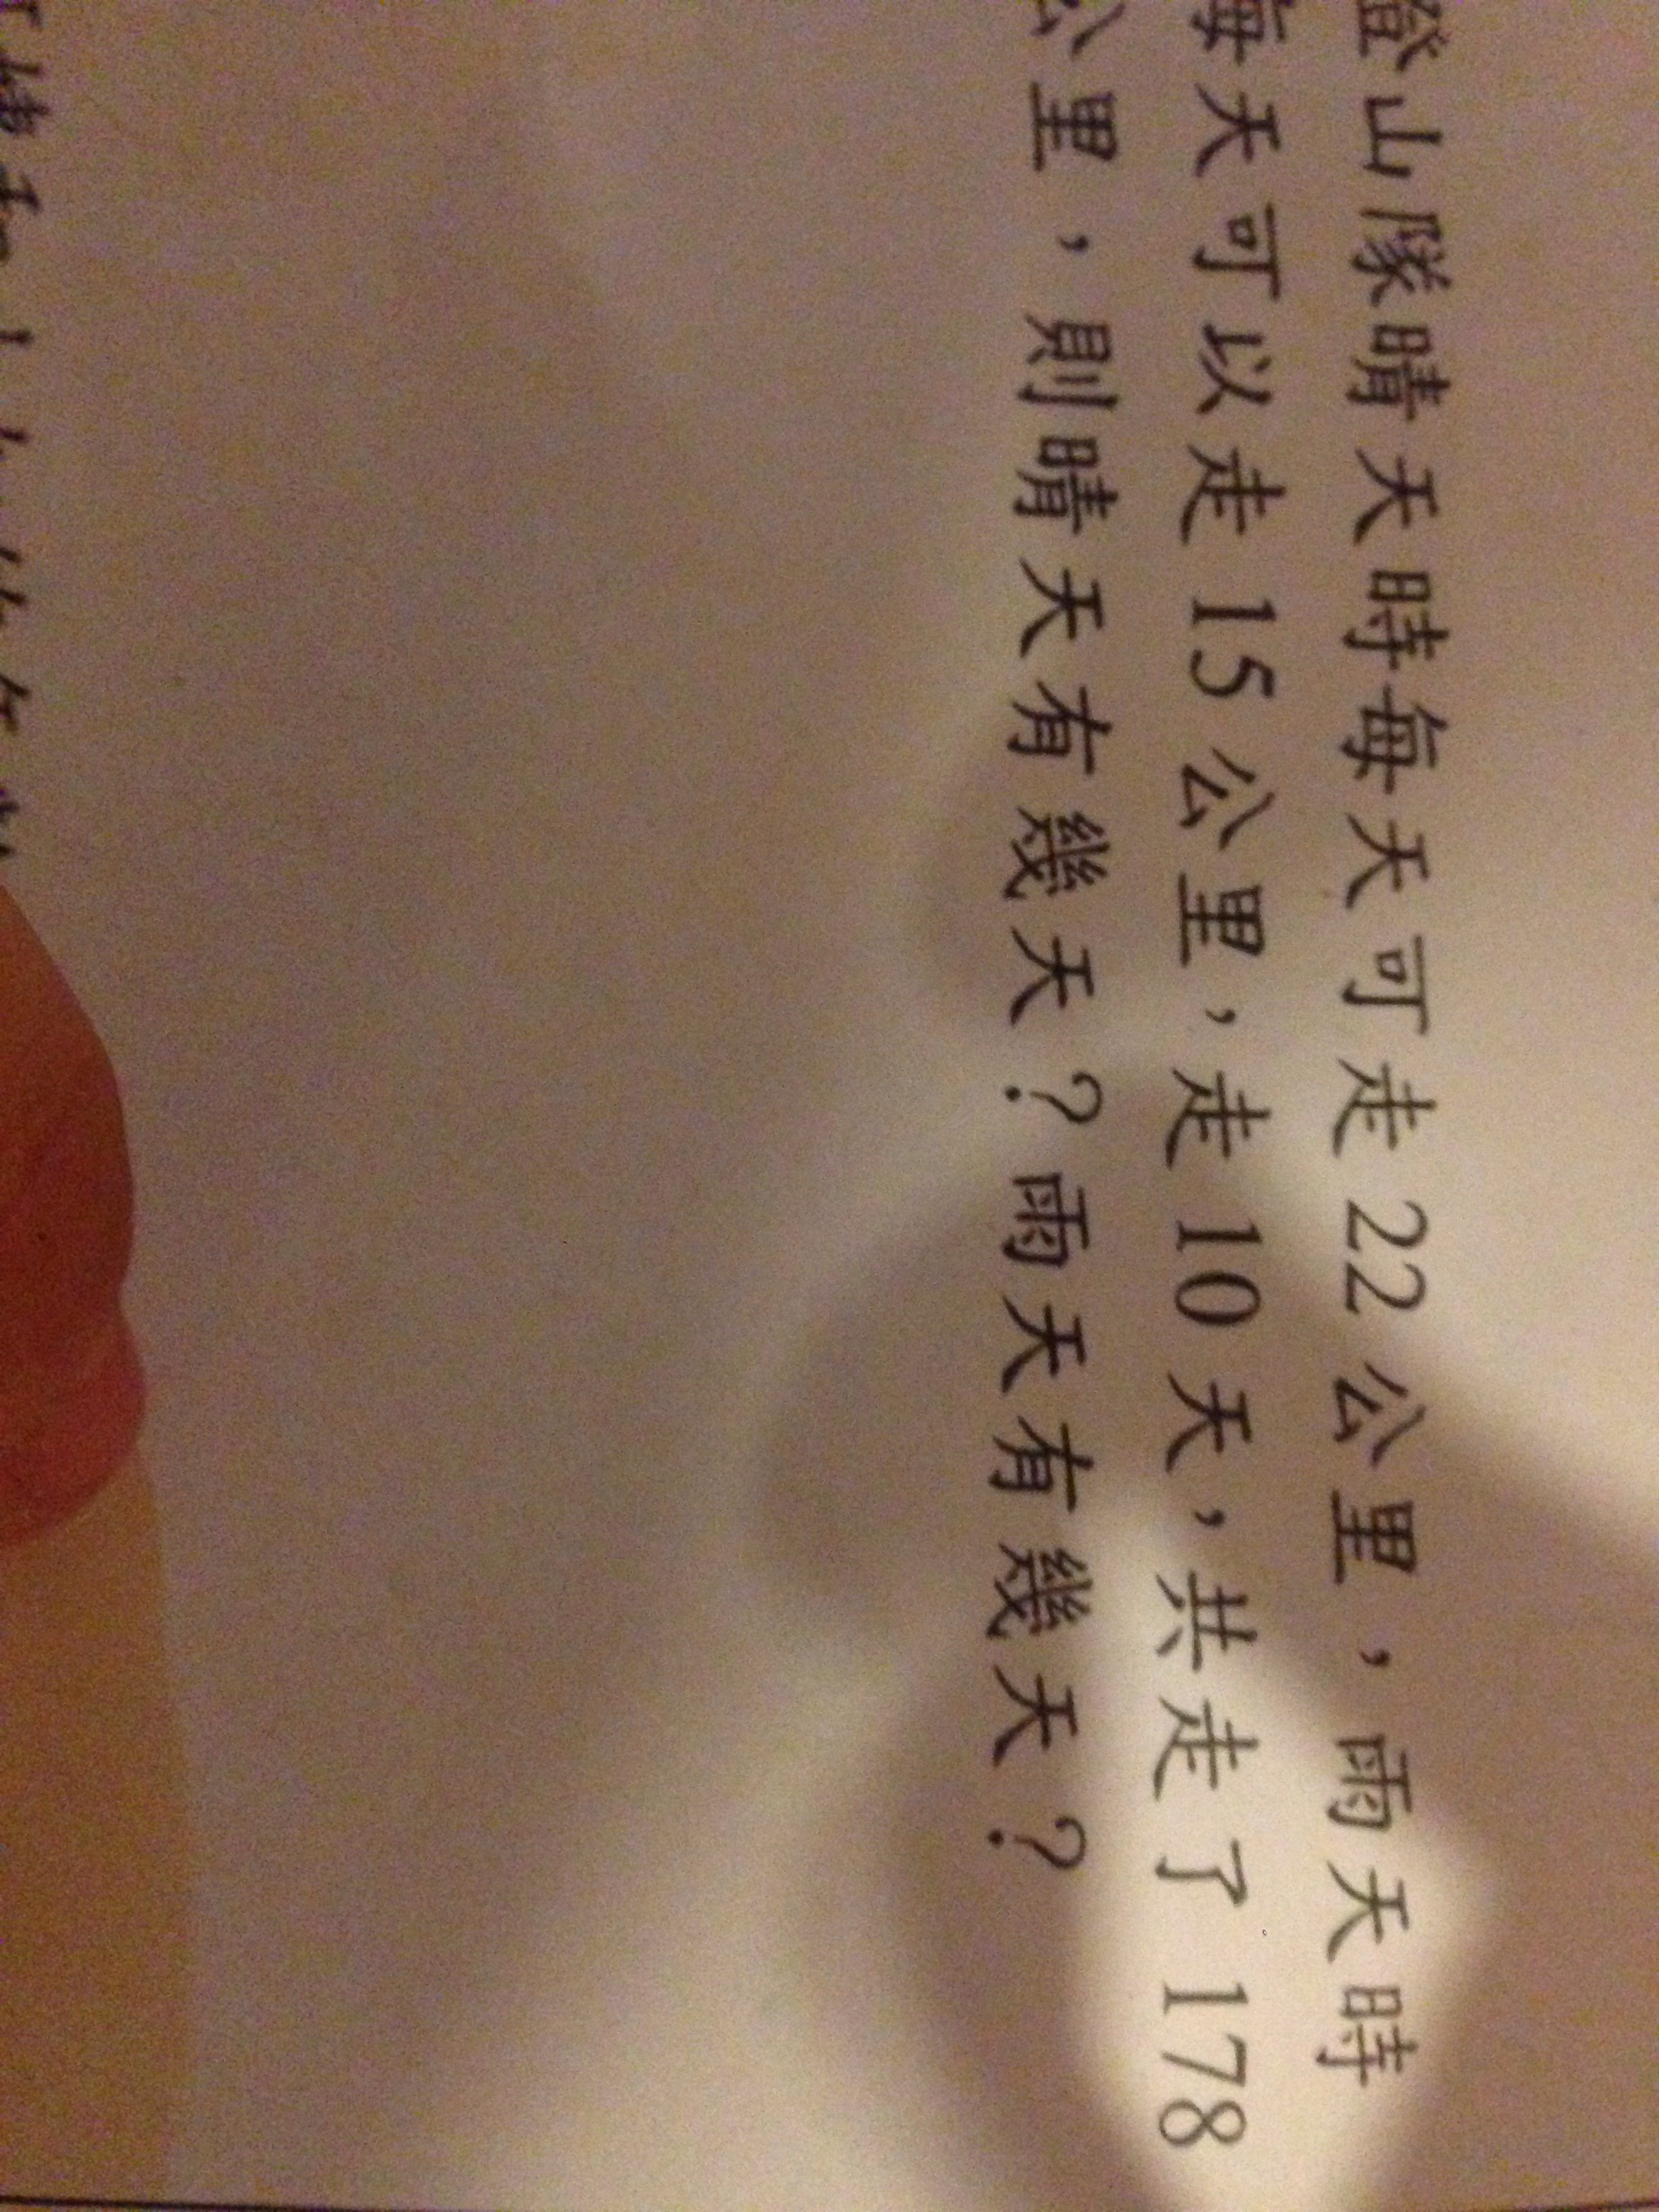 登山隊晴天時每天可走22公里，雨天時
每天可以走15公里，走10天，共走了178
公里，則晴天有幾天？雨天有幾天？